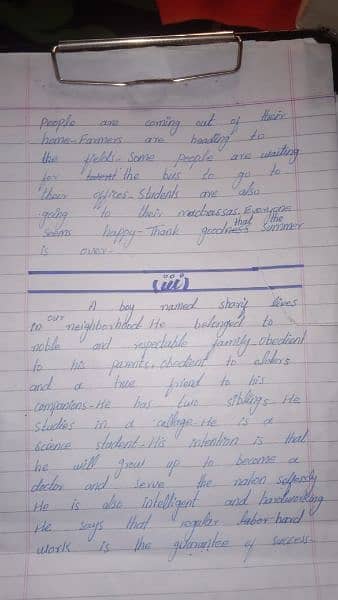 People are coming out of their
home-Farmers are heading to
the fields-Some people are waiting
for the bus to go to
their offices-Students are also
going to their madrassas. Everyone
seems happy-Thank goodness that the summer
is over-
(iii)
A boy named sharif lives
in our neighborhood.He belonged to
noble and respectable family-Obedient
to his parents, obedient to elders
and a true friend to his
companions-He has two siblings-He
studies in a college-He is a
science student-His intention is that
he will grow up to become a
doctor and serve the nation selflessly
He is also intelligent and hardworking
He says that regular labor hard
work is the guarantee of success-